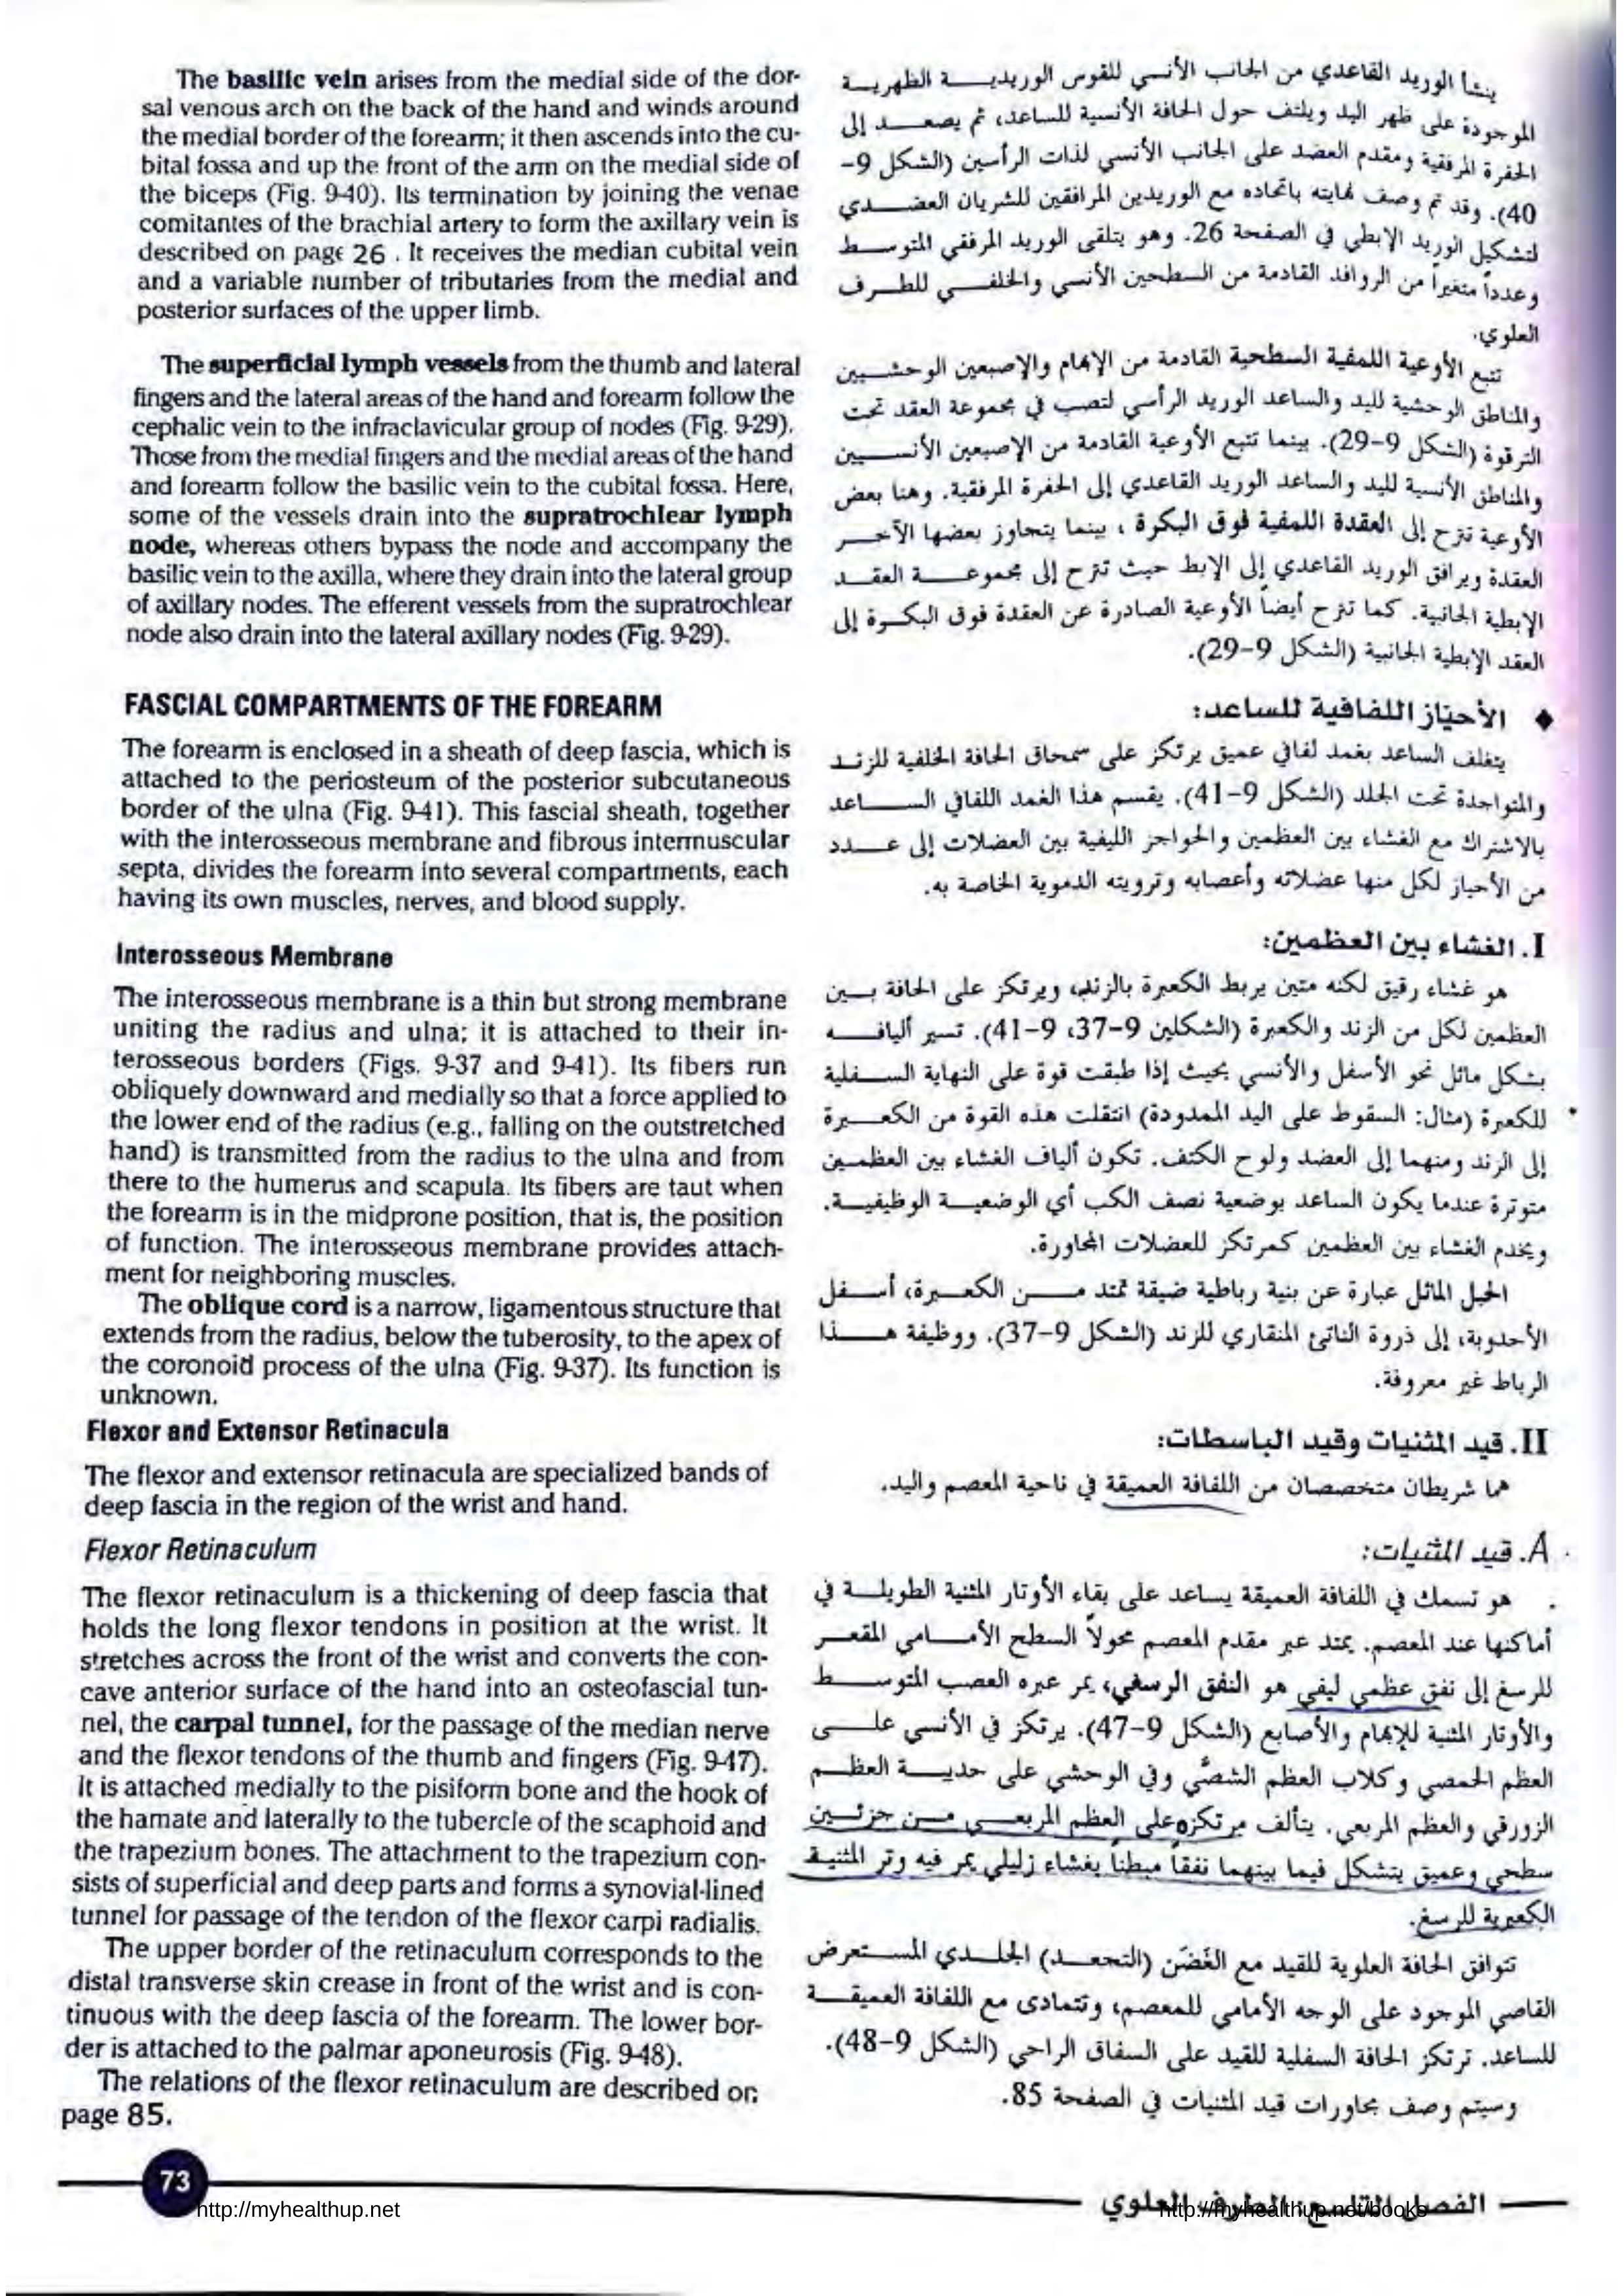 The basilic vein arises from the medial side of the dor-
sal venous arch on the back of the hand and winds around
the medial border of the forearm; it then ascends into the cu-
bital fossa and up the front of the arm on the medial side of
the biceps (Fig. 9-40). Its termination by joining the venae
comitantes of the brachial artery to form the axillary vein is
described on page 26 . It receives the median cubital vein
and a variable number of tributaries from the medial and
posterior surfaces of the upper limb.
The superficial lymph vessels from the thumb and lateral
fingers and the lateral areas of the hand and forearm follow the
cephalic vein to the infraclavicular group of nodes (Fig. 9-29).
Those from the medial fingers and the medial areas of the hand
and forearm follow the basilic vein to the cubital fossa. Here,
some of the vessels drain into the supratrochlear lymph
node, whereas others bypass the node and accompany the
basilic vein to the axilla, where they drain into the lateral group
of axillary nodes. The efferent vessels from the supratrochlear
node also drain into the lateral axillary nodes (Fig. 9-29).
FASCIAL COMPARTMENTS OF THE FOREARM
The forearm is enclosed in a sheath of deep fascia, which is
attached to the periosteum of the posterior subcutaneous
border of the ulna (Fig. 9-41). This fascial sheath, together
with the interosseous membrane and fibrous intermuscular
septa, divides the forearm into several compartments, each
having its own muscles, nerves, and blood supply.
Interosseous Membrane
The interosseous membrane is a thin but strong membrane
uniting the radius and ulna; it is attached to their in-
terosseous borders (Figs. 9-37 and 9-41). Its fibers run
obliquely downward and medially so that a force applied to
the lower end of the radius (e.g., falling on the outstretched
hand) is transmitted from the radius to the ulna and from
there to the humerus and scapula. Its fibers are taut when
the forearm is in the midprone position, that is, the position
of function. The interosseous membrane provides attach-
ment for neighboring muscles.
The oblique cord is a narrow, ligamentous structure that
extends from the radius, below the tuberosity, to the apex of
the coronoid process of the ulna (Fig. 9-37). Its function is
unknown.
Flexor and Extensor Retinacula
The flexor and extensor retinacula are specialized bands of
deep fascia in the region of the wrist and hand.
Flexor Retinaculum
The flexor retinaculum is a thickening of deep fascia that
holds the long flexor tendons in position at the wrist. It
stretches across the front of the wrist and converts the con-
cave anterior surface of the hand into an osteofascial tun-
nel, the carpal tunnel, for the passage of the median nerve
and the flexor tendons of the thumb and fingers (Fig. 9-47).
It is attached medially to the pisiform bone and the hook of
the hamate and laterally to the tubercle of the scaphoid and
the trapezium bones. The attachment to the trapezium con-
sists of superficial and deep parts and forms a synovial-lined
tunnel for passage of the tendon of the flexor carpi radialis.
The upper border of the retinaculum corresponds to the
distal transverse skin crease in front of the wrist and is con-
tinuous with the deep fascia of the forearm. The lower bor-
der is attached to the palmar aponeurosis (Fig. 9-48).
The relations of the flexor retinaculum are described on
page 85.
ينشأ الوريد القاعدي من الجانب الأنسي للقوس الوريديـــة الظهريـــة
الموجودة على ظهر اليد ويلتف حول الحافة الأنسية للساعد، ثم يصعـــد إلى
الحفرة المرفقية ومقدم العضد على الجانب الأنسي لذات الرأسين (الشكل 9-
40). وقد تم وصف نهايته باتحاده مع الوريدين المرافقين للشريان العضـــدي
لتشكيل الوريد الإبطي في الصفحة 26. وهو يتلقى الوريد المرفقي المتوســـط
وعدداً متغيراً من الروافد القادمة من السطحين الأنسي والخلفـــي للطـــرف
العلوي.
تتبع الأوعية اللمفية السطحية القادمة من الإبهام والإصبعين الوحشـــيين
والمناطق الوحشية لليد والساعد الوريد الرأسي لتصب في مجموعة العقد تحت
الترقوة (الشكل 9-29). بينما تتبع الأوعية القادمة من الإصبعين الأنســـيين
والمناطق الأنسية لليد والساعد الوريد القاعدي إلى الحفرة المرفقية. وهنا بعض
الأوعية تنزح إلى العقدة اللمفية فوق البكرة ، بينما يتجاوز بعضها الآخـــر
العقدة ويرافق الوريد القاعدي إلى الإبط حيث تنزح إلى مجموعـــة العقـــد
الإبطية الجانبية. كما تنزح أيضاً الأوعية الصادرة عن العقدة فوق البكـــرة إلى
العقد الإبطية الجانبية (الشكل 9-29).
◆ الأحيّاز اللفافية للساعد:
يتغلف الساعد بغمد لفافي عميق يرتكز على سمحاق الحافة الخلفية للزنـــد
والمتواجدة تحت الجلد (الشكل 9-41). يقسم هذا الغمد اللفافي الســـاعد
بالاشتراك مع الغشاء بين العظمين والحواجز الليفية بين العضلات إلى عـــدد
من الأحياز لكل منها عضلاته وأعصابه وترويته الدموية الخاصة به.
I. الغشاء بين العظمين:
هو غشاء رقيق لكنه متين يربط الكعبرة بالزند، ويرتكز على الحافة بـــين
العظمين لكل من الزند والكعبرة (الشكلين 9-37، 9-41). تسير أليافـــه
بشكل مائل نحو الأسفل والأنسي بحيث إذا طبقت قوة على النهاية الســـفلية
للكعبرة (مثال: السقوط على اليد الممدودة) انتقلت هذه القوة من الكعـــبرة
إلى الزند ومنهما إلى العضد ولوح الكتف. تكون ألياف الغشاء بين العظمـــين
متوترة عندما يكون الساعد بوضعية نصف الكب أي الوضعيـــة الوظيفيـــة.
ويخدم الغشاء بين العظمين كمرتكز للعضلات المجاورة.
الحبل المائل عبارة عن بنية رباطية ضيقة تمتد مـــن الكعـــبرة، أســـفل
الأحدوبة، إلى ذروة الناتئ المنقاري للزند (الشكل 9-37). ووظيفة هـــذا
الرباط غير معروفة.
II. قيد المثنيات وقيد الباسطات:
هما شريطان متخصصان من اللفافة العميقة في ناحية المعصم واليد.
A. قيد المثنيات:
هو تسمك في اللفافة العميقة يساعد على بقاء الأوتار المثنية الطويلـــة في
أماكنها عند المعصم. يمتد عبر مقدم المعصم محولاً السطح الأمـــامي المقعـــر
للرسغ إلى نفق عظمي ليفي هو النفق الرسغي، يمر عبره العصب المتوســـط
والأوتار المثنية للإبهام والأصابع (الشكل 9-47). يرتكز في الأنسي علـــى
العظم الحمصي وكلاب العظم الشصّي وفي الوحشي على حديـــة العظـــم
الزورقي والعظم المربعي. يتألف مرتكزه على العظم المربعـــي مـــن جزئـــين
سطحي وعميق يتشكل فيما بينهما نفقاً مبطناً بغشاء زليلي يمر فيه وتر المثنيـــة
الكعبرية للرسغ.
تتوافق الحافة العلوية للقيد مع الغَضَن (التجعـــد) الجلـــدي المســـتعرض
القاصي الموجود على الوجه الأمامي للمعصم، وتتمادى مع اللفافة العميقـــة
للساعد. ترتكز الحافة السفلية للقيد على السفاق الراحي (الشكل 9-48).
وسيتم وصف مجاورات قيد المثنيات في الصفحة 85.
73
http://myhealthup.net
الفصل التاسع: الطرف العلوي
http://myhealthup.net/books